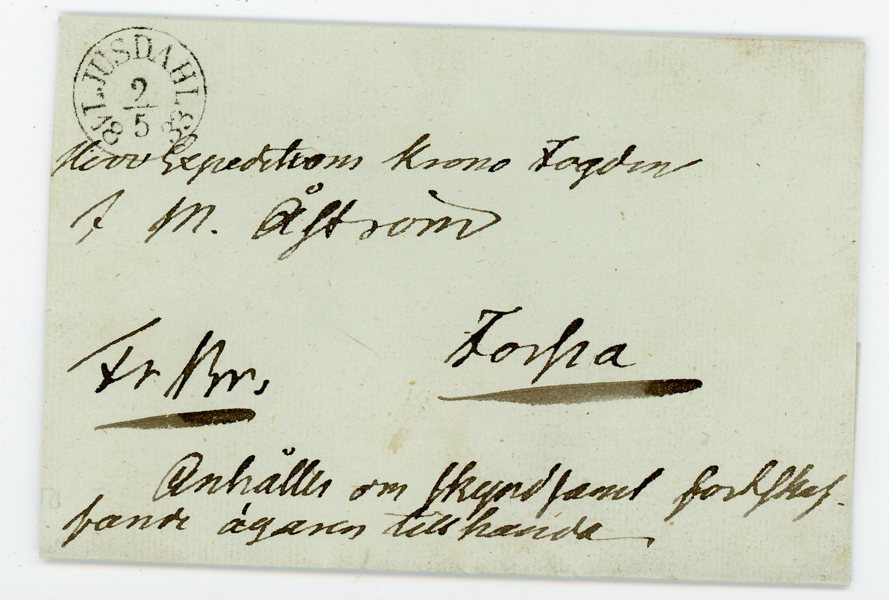 LJUSDAHL
2
5
1853
Herr Expeditions Krono Fogden
J M. Åström
Fr Br.
Forssa
Anhålles om skyndsamt fortskaf-
fande ägaren tillhanda